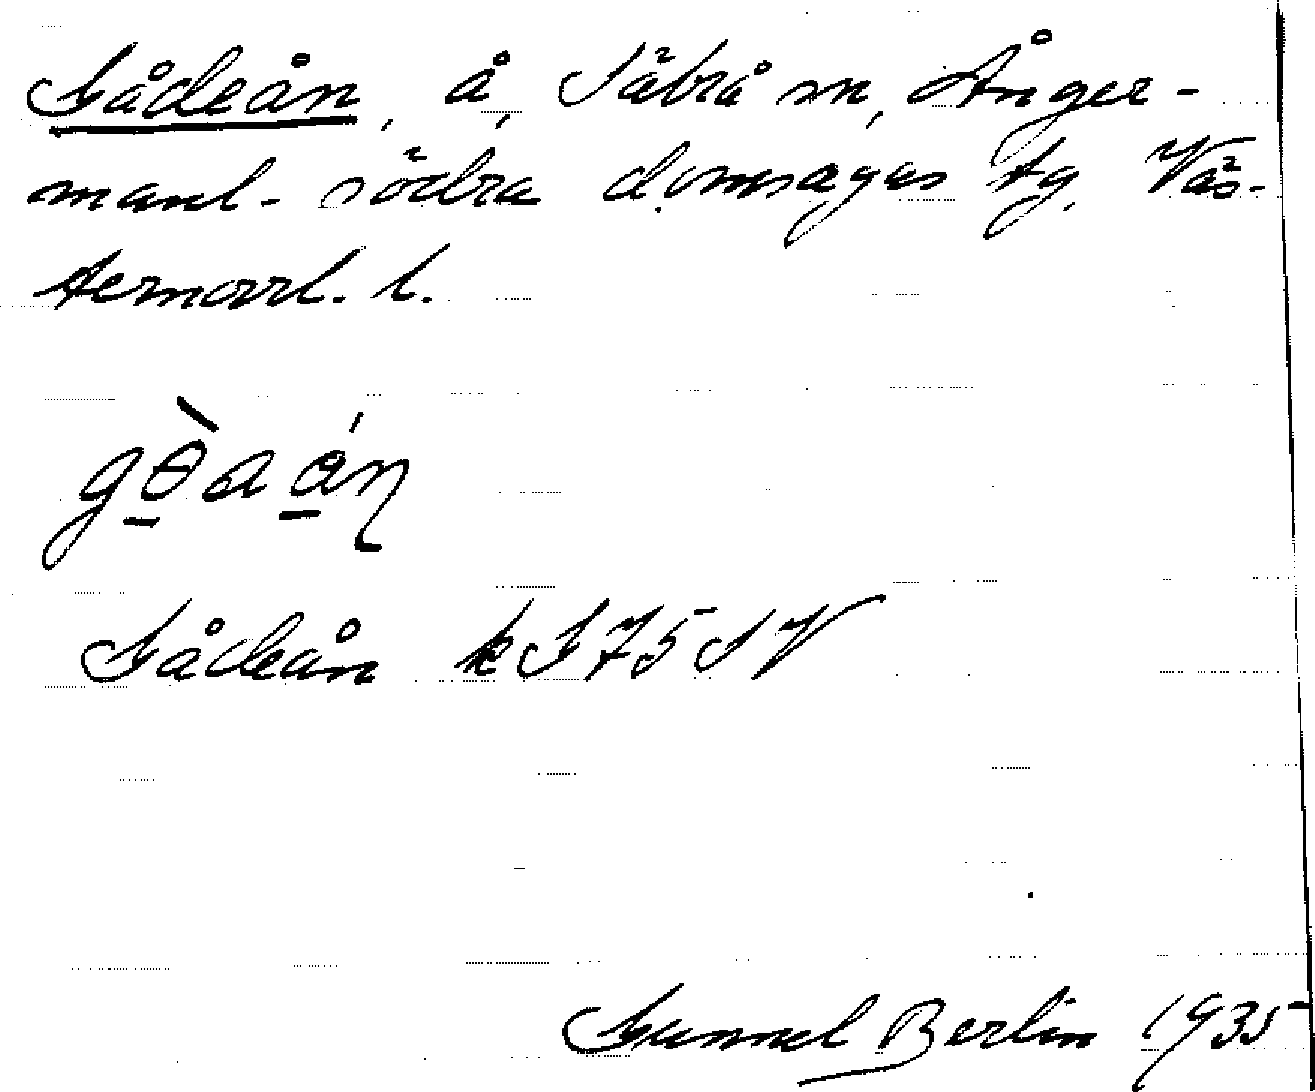 Gådeån, å, Säbrå sn, Ånger-
manl. södra domsagas tg, Väs-
ternorrl. l.
Gådeån k I 75 SV
Gunnel Berlin 1935